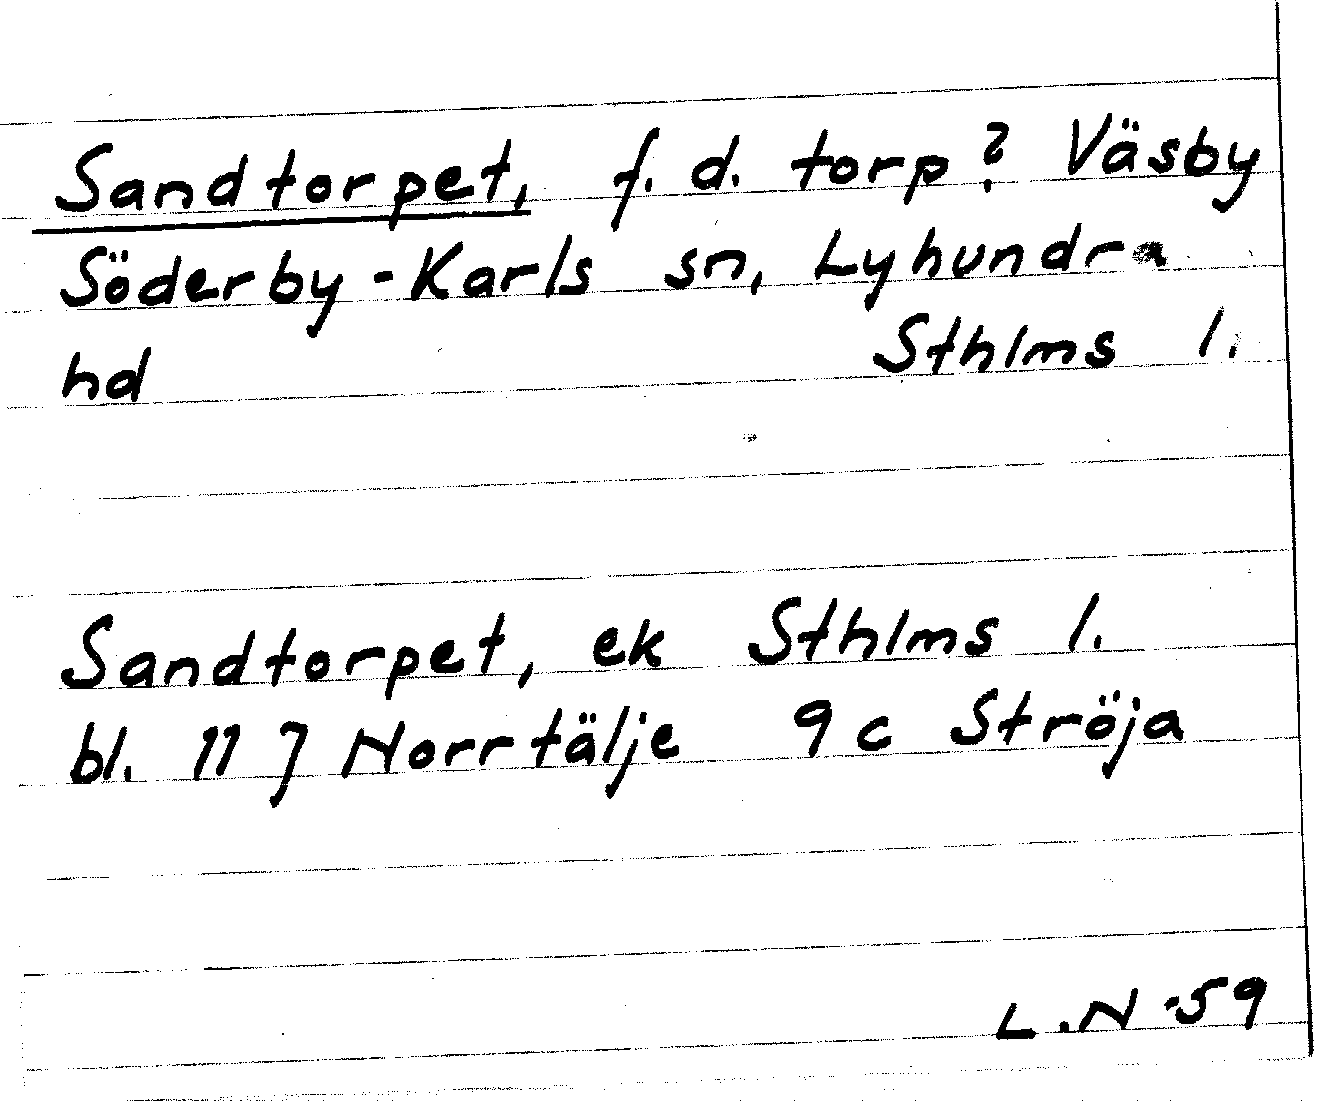 Sandtorpet, f. d. torp? Väsby
Söderby-Karls sn, Lyhundra
hd Sthlms l.
Sandtorpet, ek Sthlms l.
bl. 11 J Norrtälje 9 c Ströja
L.N -59